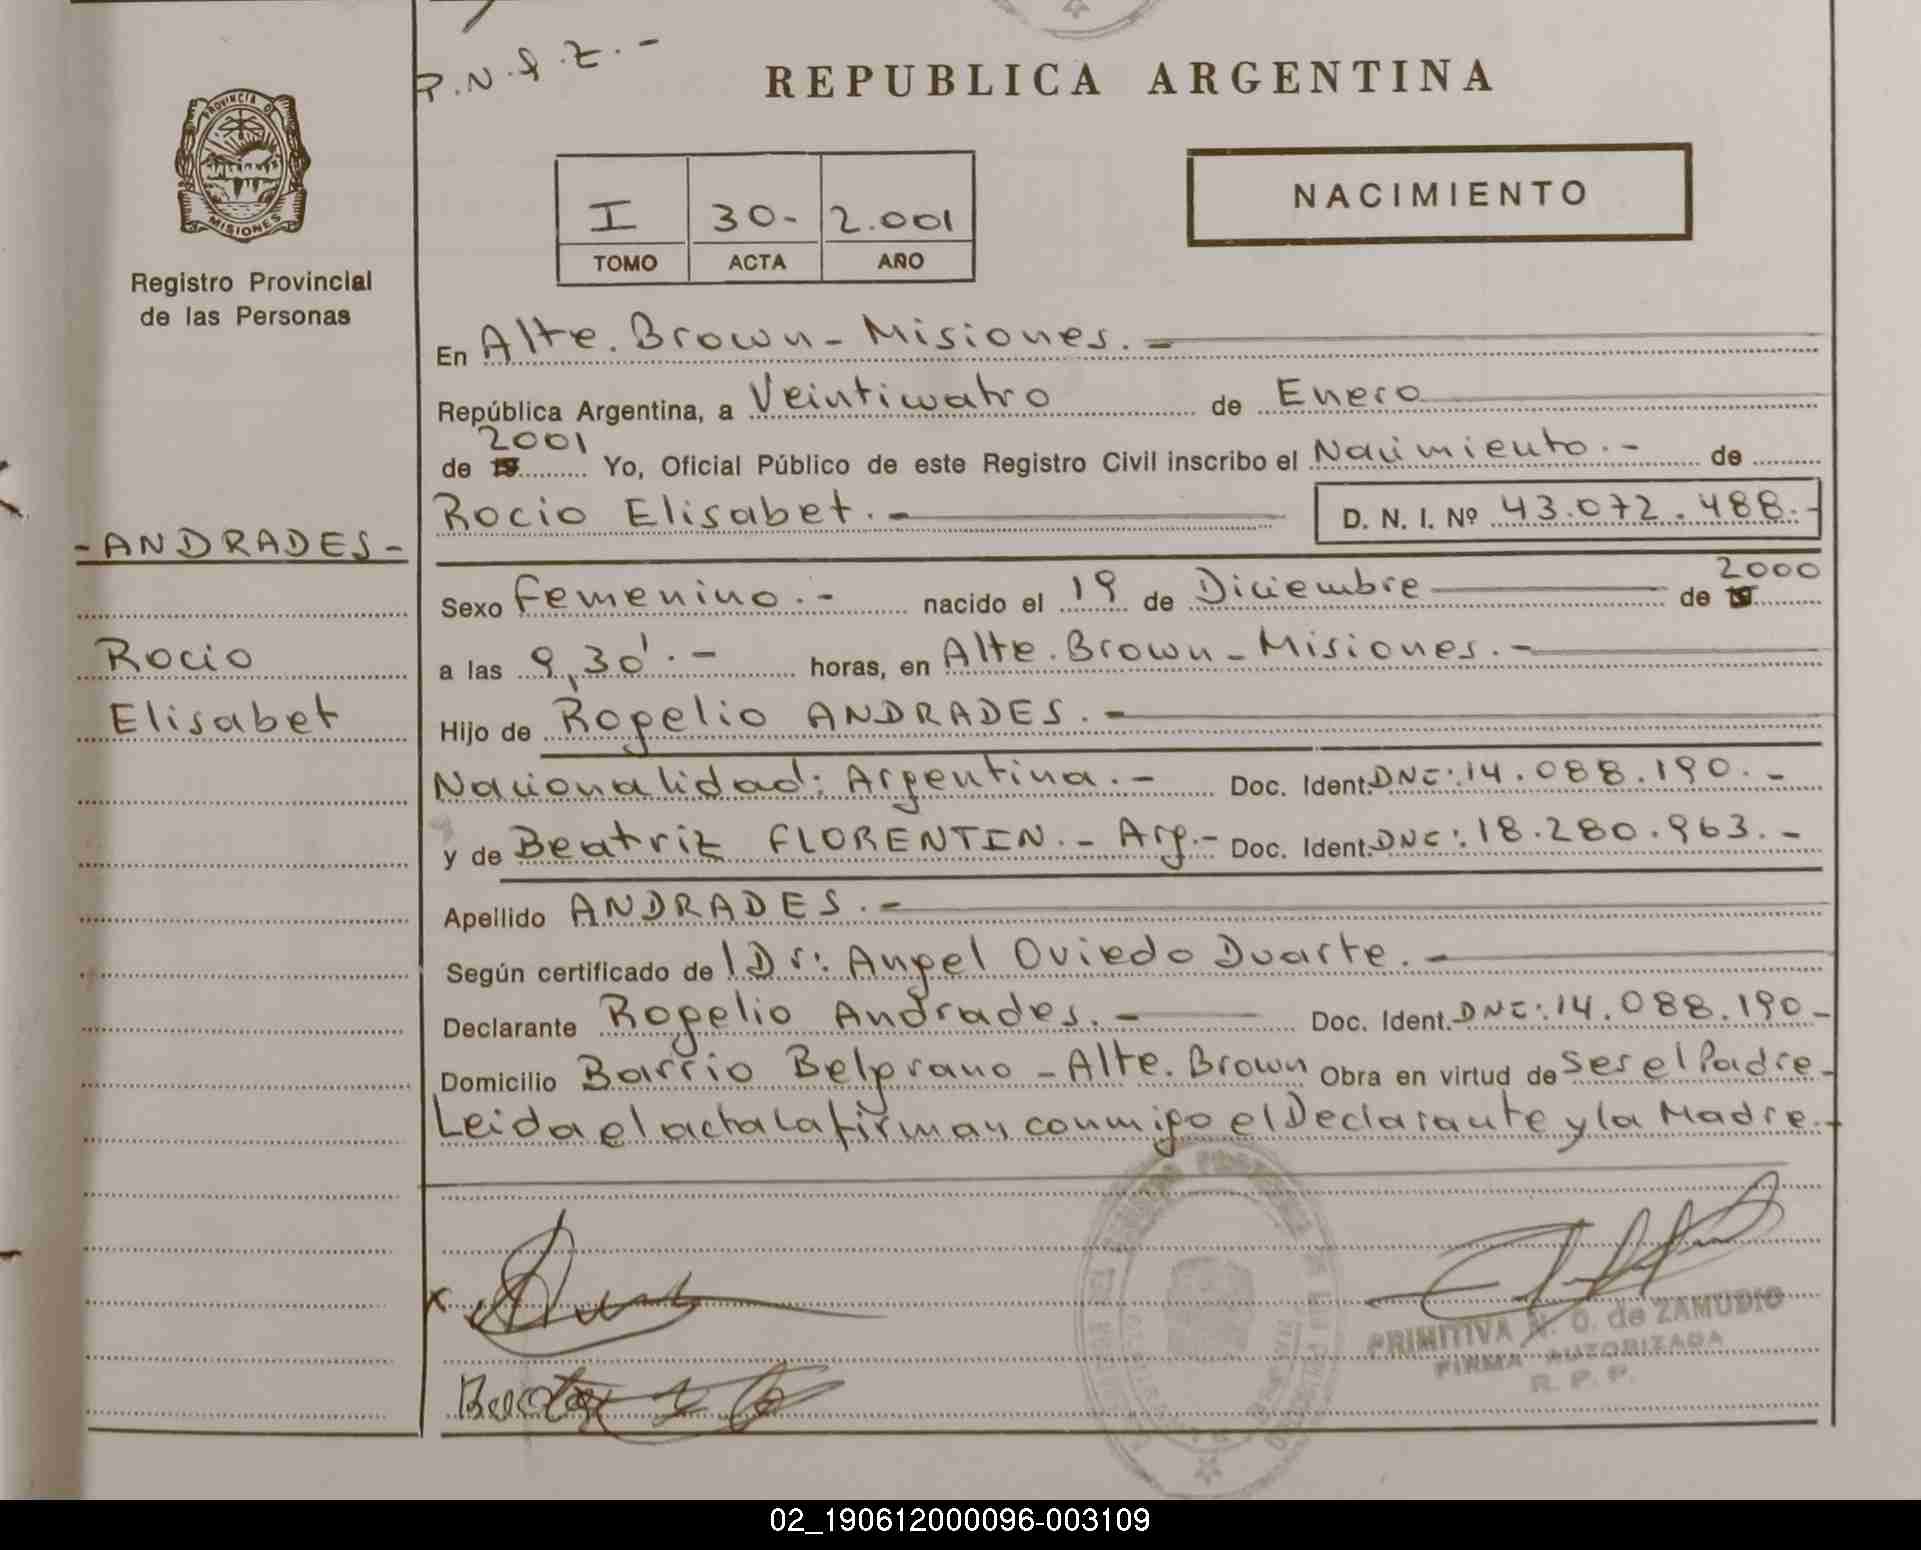 P.N.I.Z.-
REPUBLICA ARGENTINA
PROVINCIA DE
MISIONES
Registro Provincial
de las Personas
I 30- 2.001
TOMO ACTA AÑO
NACIMIENTO
En Alte. Brown - Misiones. -
República Argentina, a Veinticuatro de Enero
de 19 2001 Yo, Oficial Público de este Registro Civil inscribo el Nacimiento. - de
Rocio Elisabet. - D. N. I. Nº 43.072.488.-
- ANDRADES -
Rocio
Elisabet
Sexo Femenino. - nacido el 19 de Diciembre de 19 2000
a las 9,30'. - horas, en Alte. Brown - Misiones. -
Hijo de Rogelio ANDRADES. -
Nacionalidad: Argentina. - Doc. Ident. DNI: 14.088.190. -
y de Beatriz FLORENTIN. - Arg. - Doc. Ident. DNI: 18.280.963. -
Apellido ANDRADES. -
Según certificado de l Dr: Angel Oviedo Duarte. -
Declarante Rogelio Andrades. - Doc. Ident. DNI: 14.088.190 -
Domicilio Barrio Belgrano - Alte. Brown Obra en virtud de ser el Padre -
Leida el acta la firman conmigo el Declarante y la Madre. -
PRIMITIVA N. O. de ZAMUDIO
FIRMA AUTORIZADA
R. P. P.
02_190612000096-003109